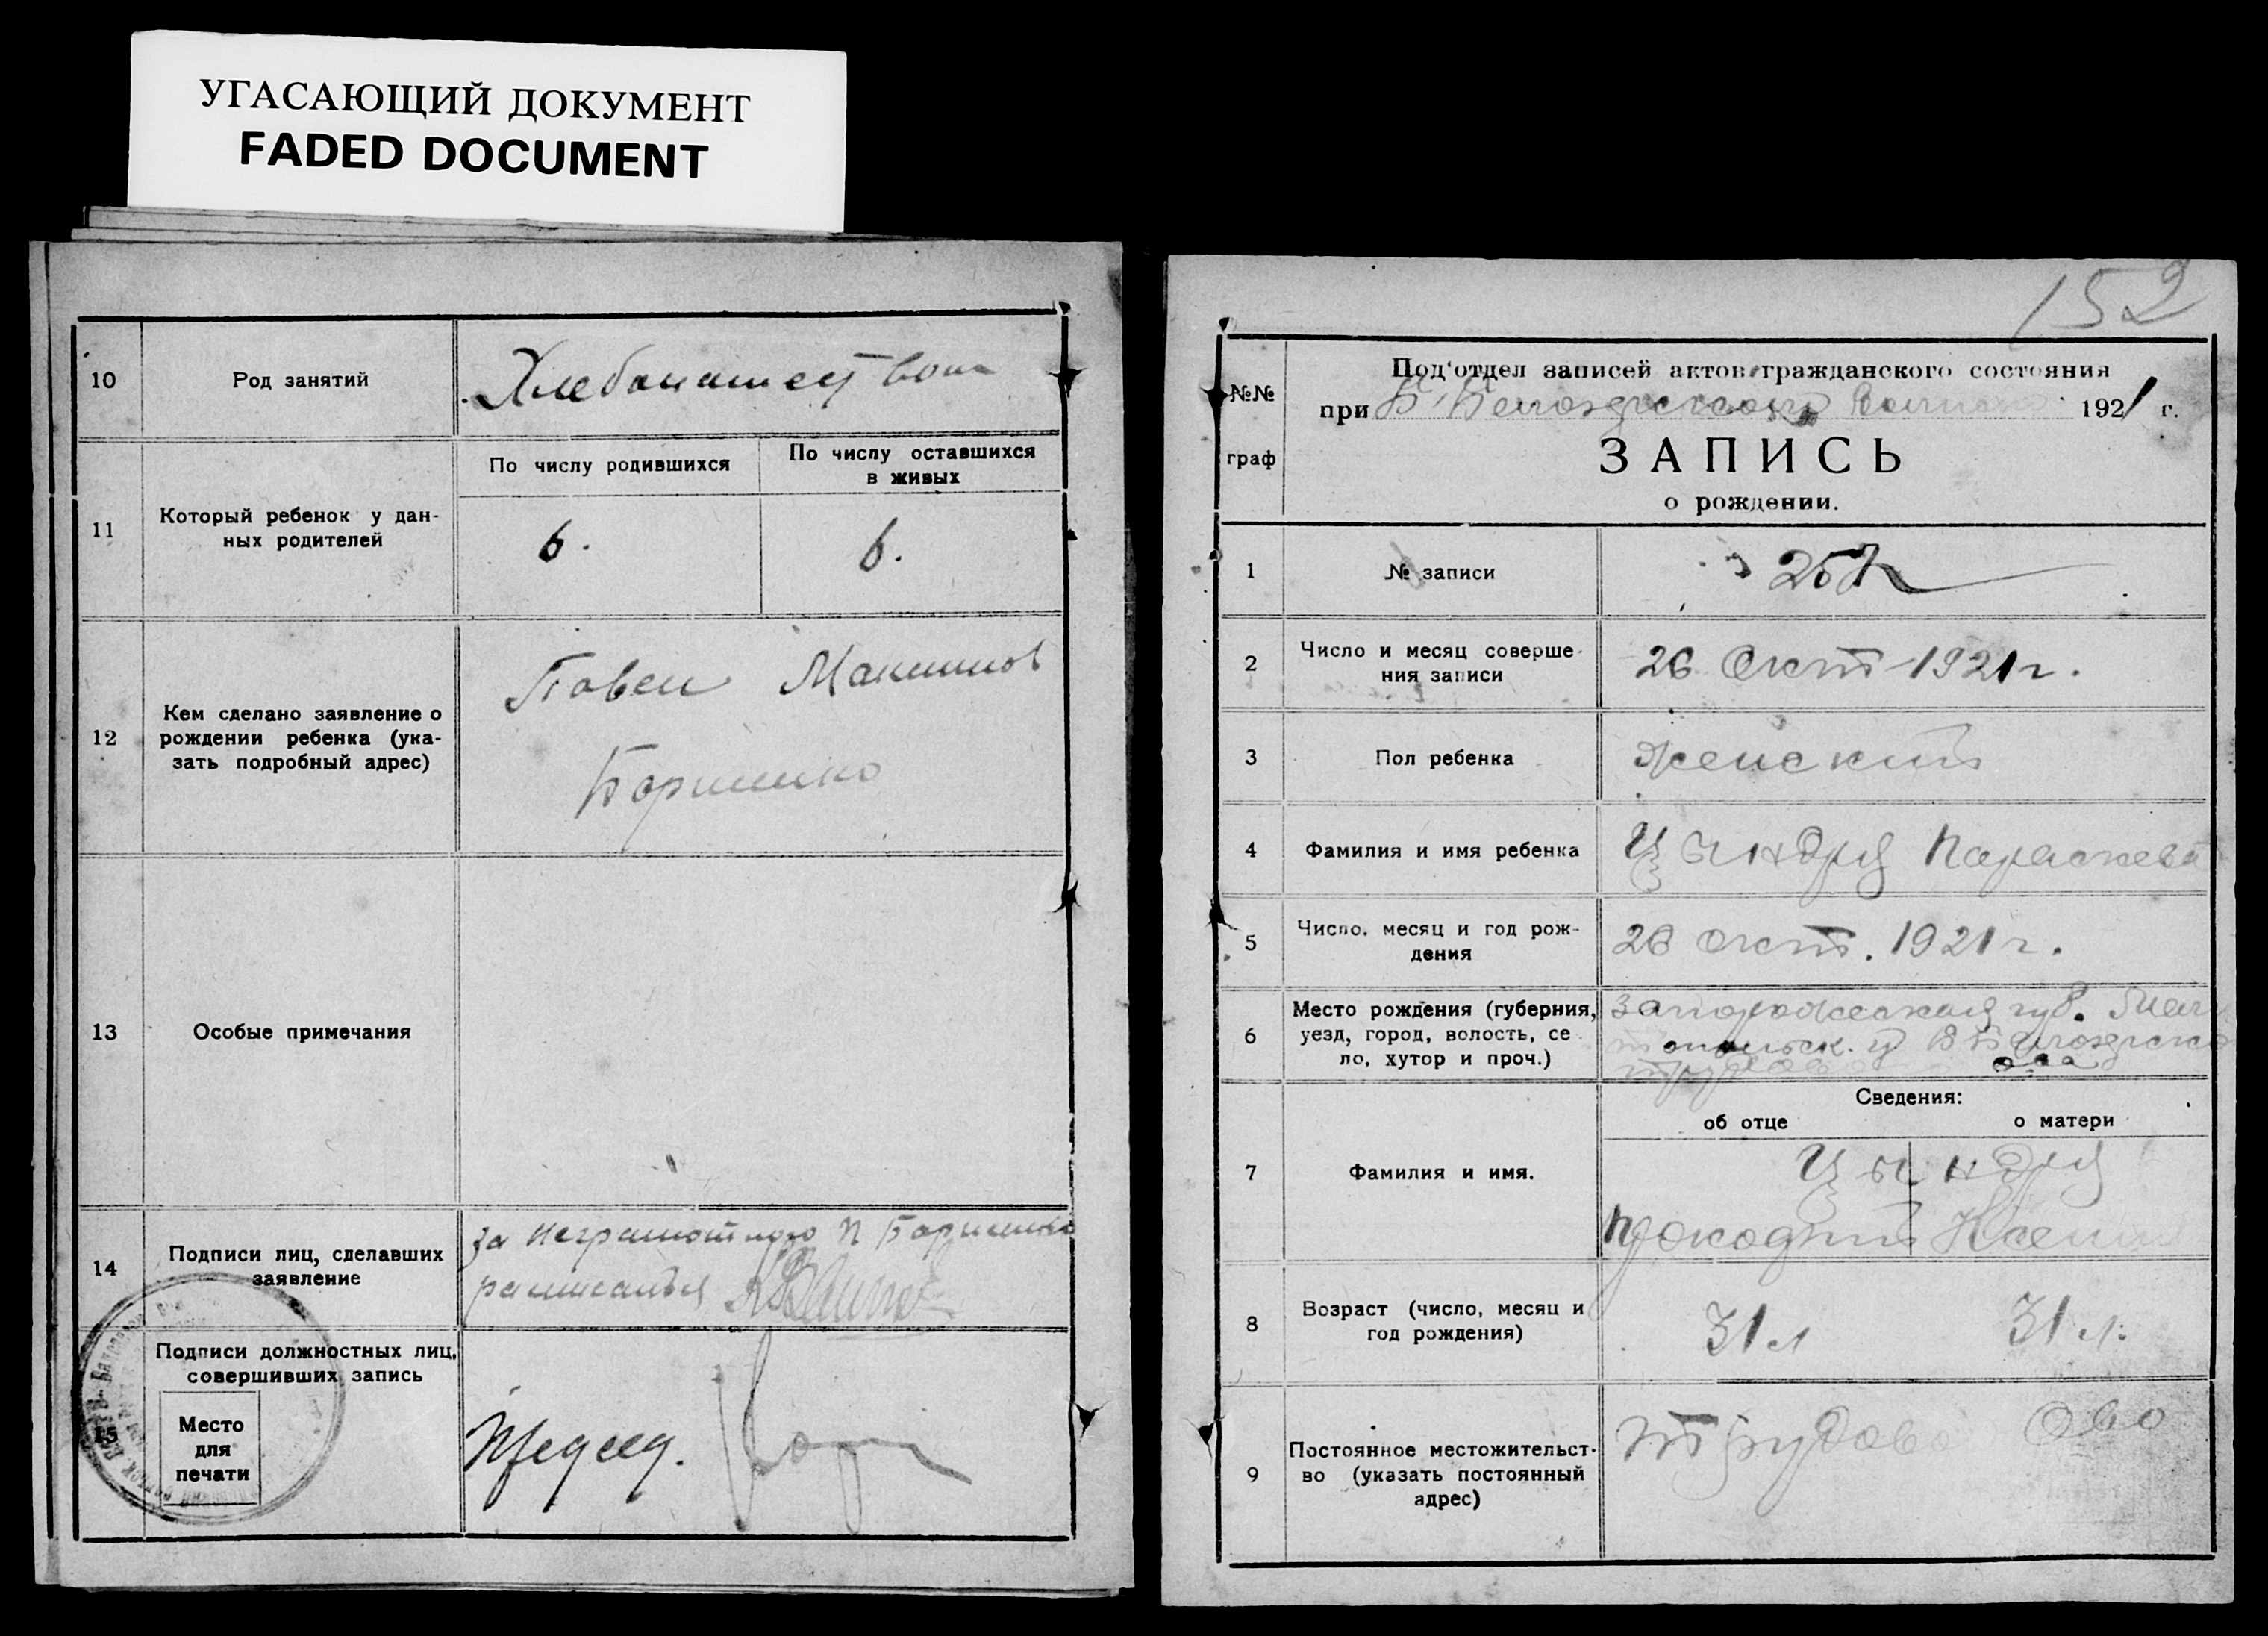 УГАСАЮЩИЙ ДОКУМЕНТ
FADED DOCUMENT
10
Род занятий
Хлебопашество
11
Который ребенок у дан-
ных родителей
По числу родившихся
По числу оставшихся
в живых
6.
6.
12
Кем сделано заявление о
рождении ребенка (ука-
зать подробный адрес)
Павел Максимов
Борисенко
13
Особые примечания
14
Подписи лиц, сделавших
заявление
за Неграмотного П Борисенко
15
Подписи должностных лиц,
совершивших запись
Место
для
печати
Председ.
152
№№
граф
Под'отдел записей актов гражданского состояния
при 1921 г.
ЗАПИСЬ
о рождении.
1
№ записи
2
Число и месяц соверше-
ния записи
26 Окт 1921 г.
3
Пол ребенка
женский
4
Фамилия и имя ребенка
Цындря Параскева
5
Число, месяц и год рож-
дения
26 окт. 1921 г.
6
Место рождения (губерния,
уезд, город, волость, се
ло, хутор и проч.)
Запорожская губ.
Сведения:
об отце
о матери
7
Фамилия и имя.
Цындря
Ксения
8
Возраст (число, месяц и
год рождения)
31 л
31 л.
9
Постоянное местожительст-
во (указать постоянный
адрес)